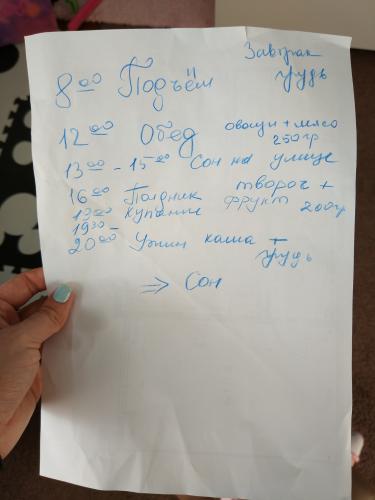 Завтрак
8 00 Подъём грудь
12 00 Обед овощи + мясо
250 гр
13 00 - 15 00 Сон на улице
16 00 Полдник творог +
фрукт 200гр
19 00 Купание
19 30 -
20 00 Ужин каша +
грудь
⇒ Сон